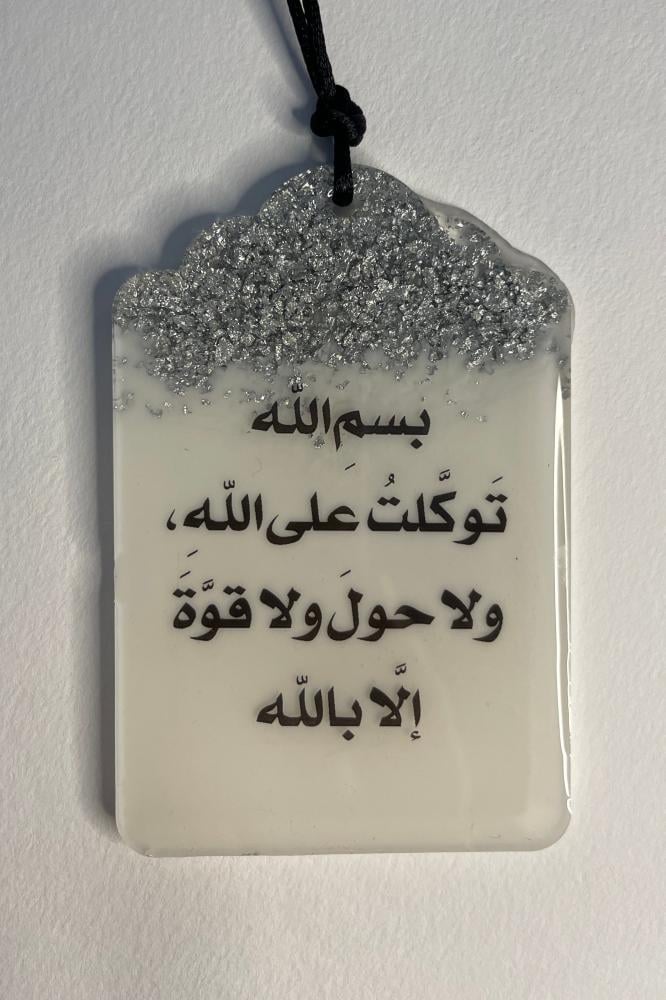 بسم الله
تَوكَّلتُ عَلى اللّه،
ولا حولَ ولا قوَّةَ
إلَّا باللّه